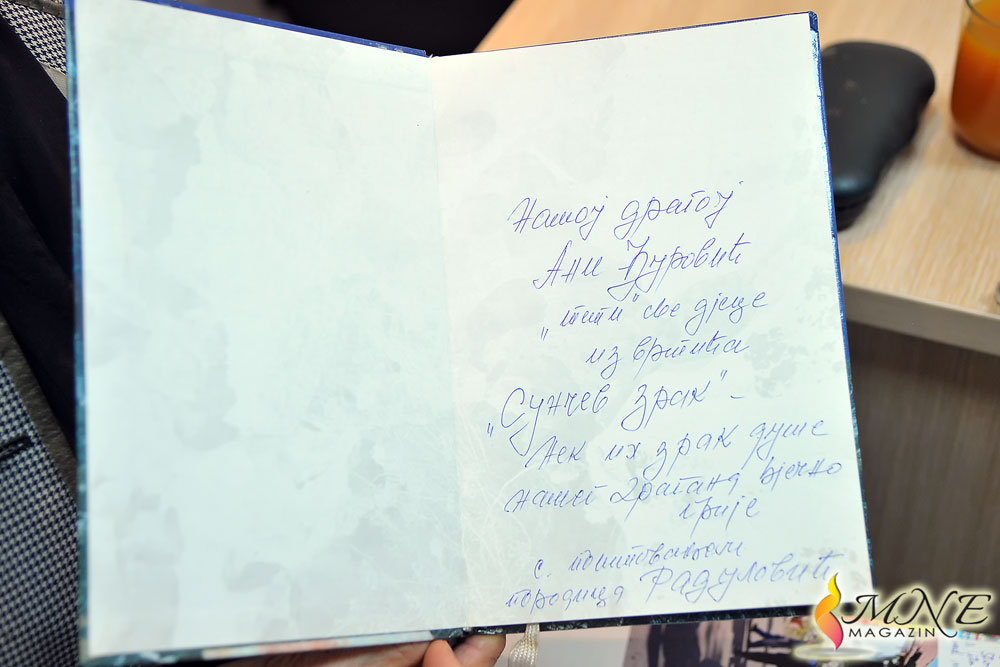 Нашој драгој
Ани Ђуровић
„тети" све дјеце
из вртића
„Сунчев зрак" -
Нек их зрак душе
нашег Драгана вјечно
грије
с. поштовањем
породица Радуловић
MNE
MAGAZIN